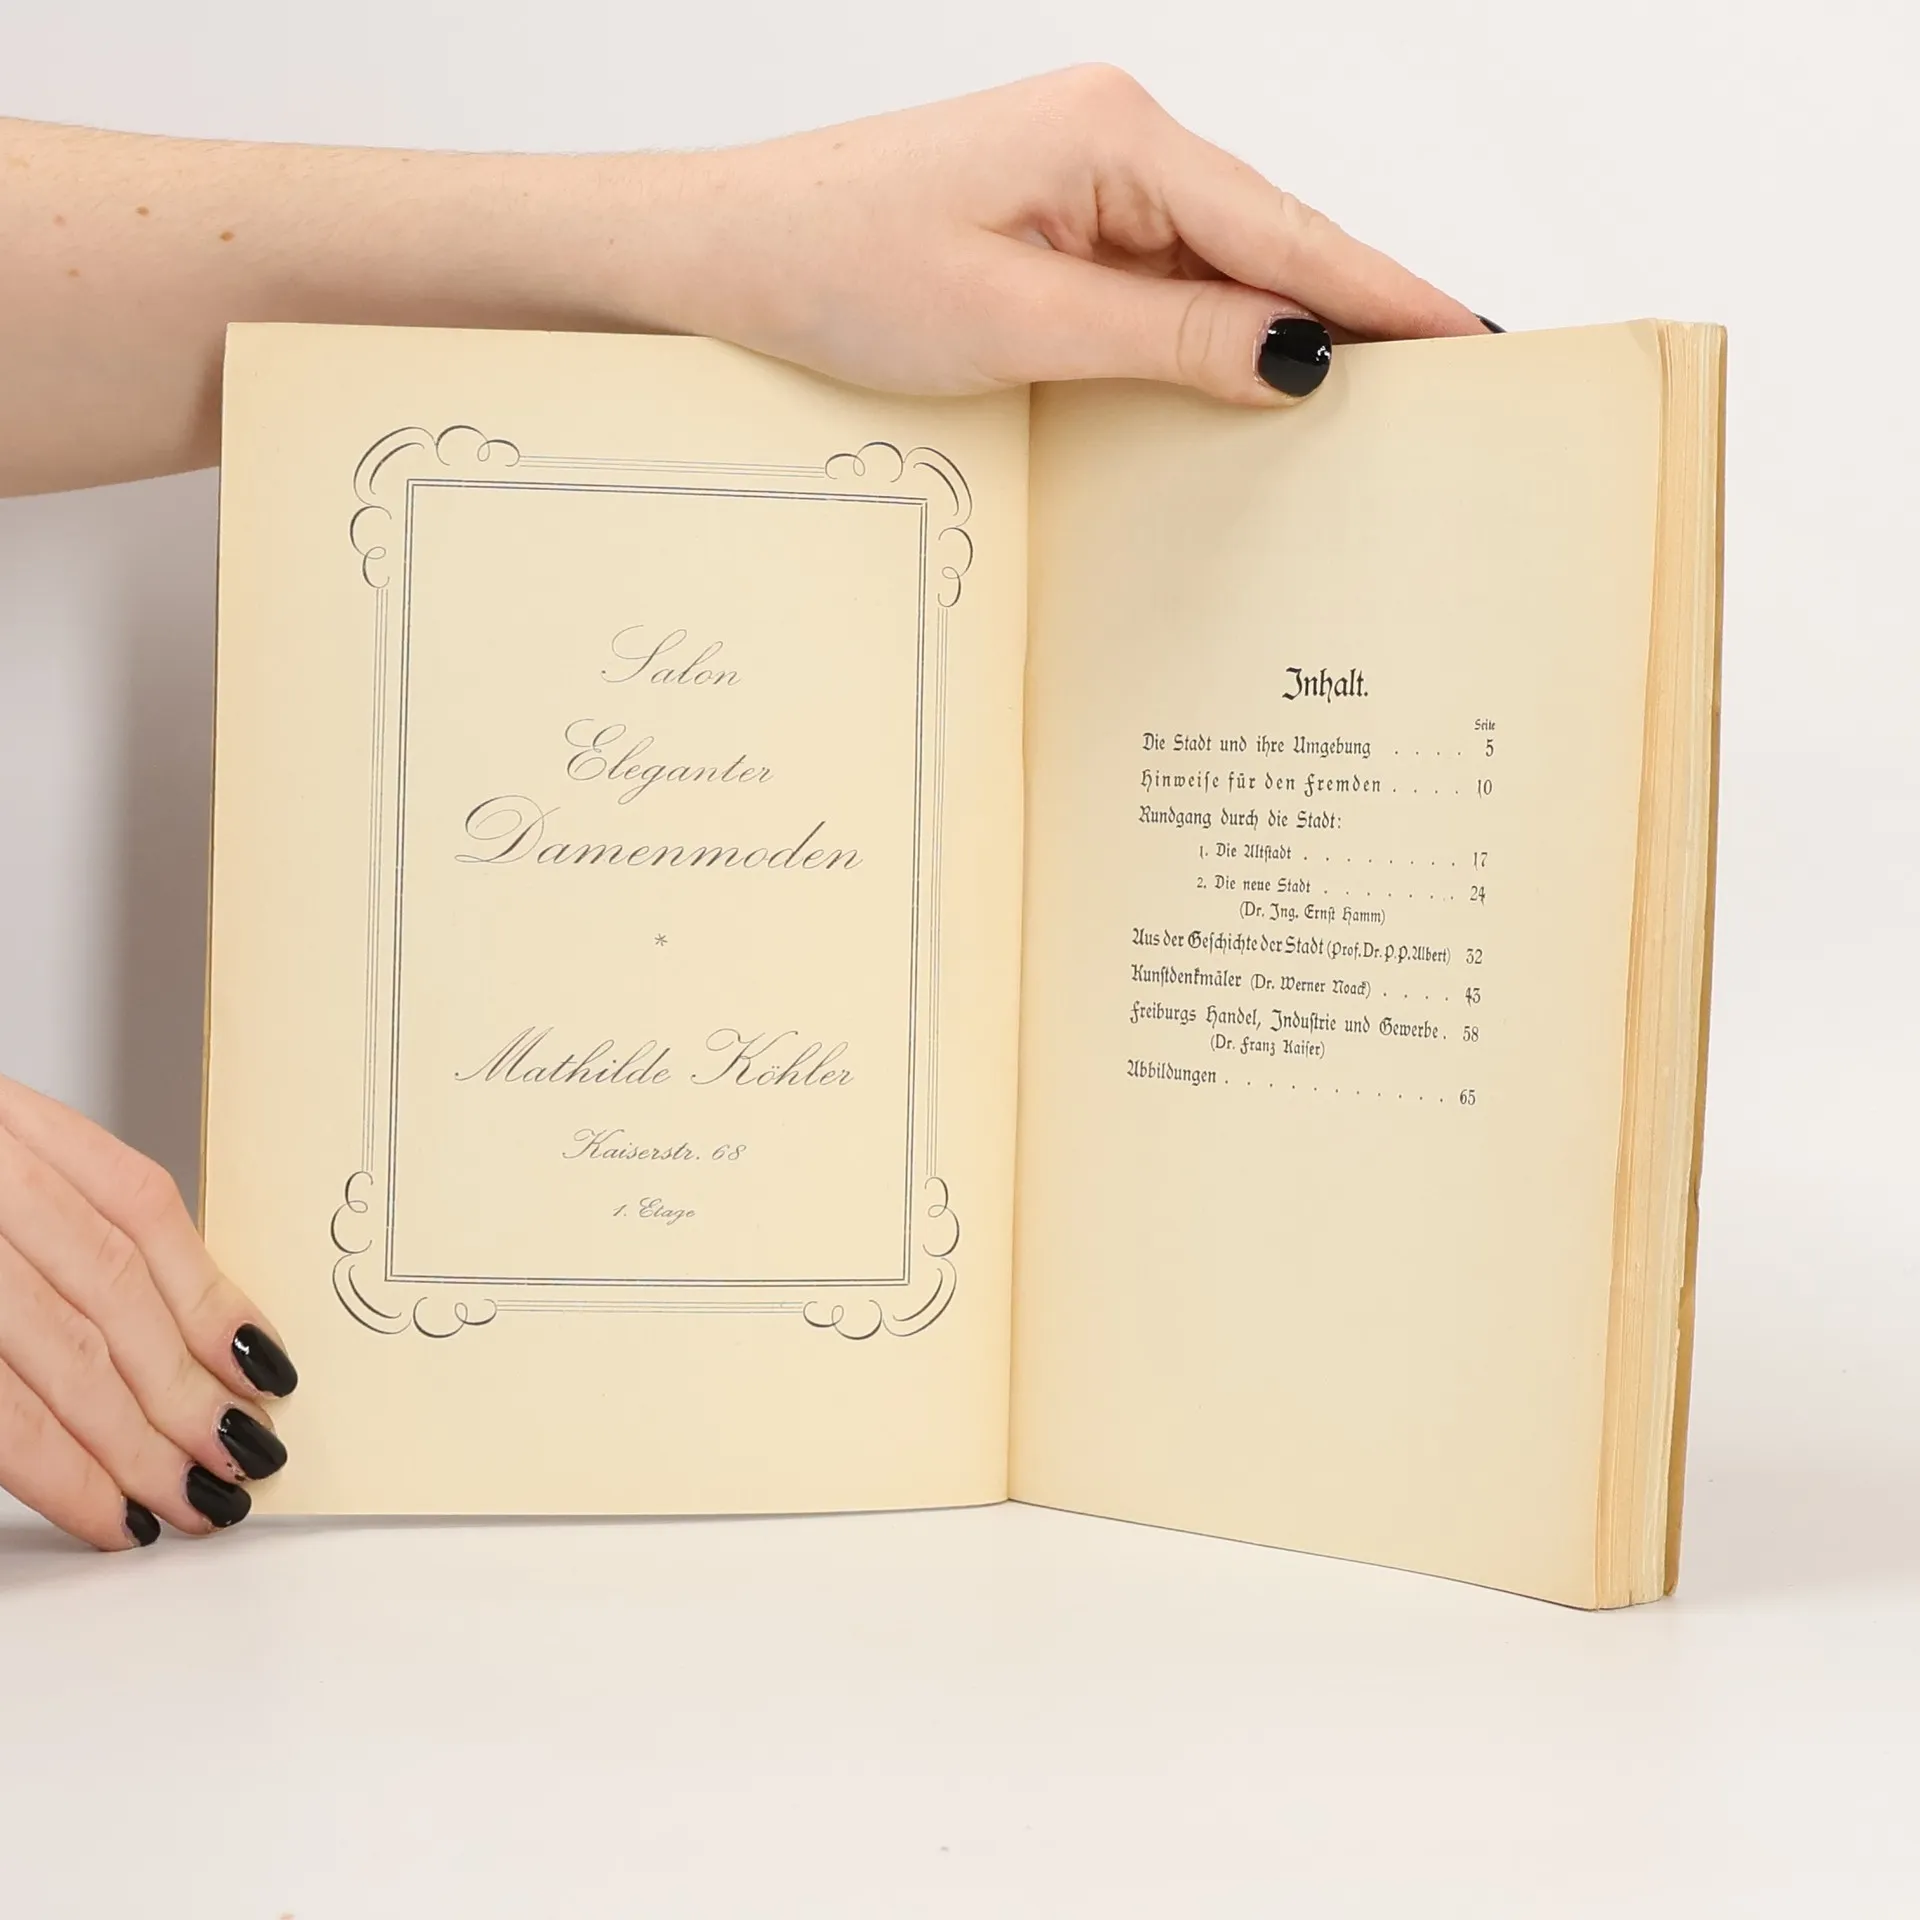 Salon
Eleganter
Damenmoden
*
Mathilde Köhler
Kaiserstr. 68
1. Etage
Inhalt.
Seite
Die Stadt und ihre Umgebung . . . . 5
Hinweiſe für den Fremden . . . . 10
Rundgang durch die Stadt:
1. Die Altſtadt . . . . . . . . 17
2. Die neue Stadt . . . . . . . . 24
(Dr. Ing. Ernſt Hamm)
Aus der Geſchichte der Stadt (Prof. Dr. P. P. Albert) 32
Kunſtdenkmäler (Dr. Werner Noack) . . . . 43
Freiburgs Handel, Induſtrie und Gewerbe . 58
(Dr. Franz Kaiſer)
Abbildungen . . . . . . . . . . . 65